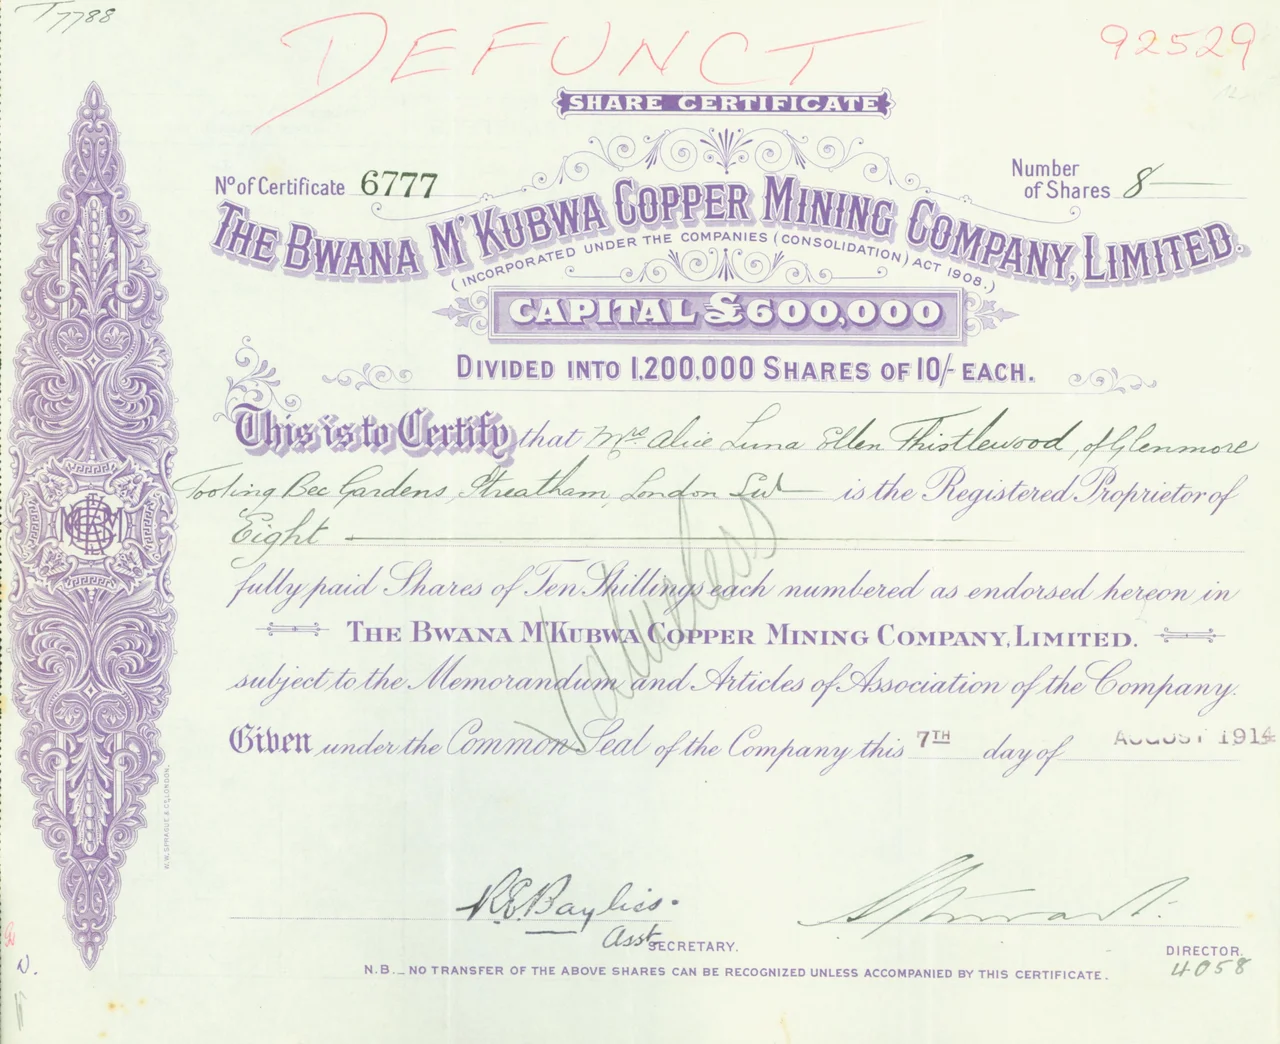 T 7788
DEFUNCT
92529
SHARE CERTIFICATE
No of Certificate 6777
Number of Shares 8
THE BWANA M'KUBWA COPPER MINING COMPANY, LIMITED.
(INCORPORATED UNDER THE COMPANIES (CONSOLIDATION) ACT 1908.)
CAPITAL £600,000
DIVIDED INTO 1,200,000 SHARES OF 10/- EACH.
This is to Certify that Mrs. Alice Luna Ellen Thistlewood, of Glenmore
Tooting Bec Gardens, Streatham, London SW is the Registered Proprietor of
Eight
fully paid Shares of Ten Shillings each numbered as endorsed hereon in
THE BWANA M'KUBWA COPPER MINING COMPANY, LIMITED.
subject to the Memorandum and Articles of Association of the Company.
Valueless
Given under the Common Seal of the Company this 7TH day of AUGUST 1914
W.W. SPRAGUE & Co LONDON.
R.E. Bayliss.
Asst SECRETARY.
DIRECTOR.
4058
N.B._ NO TRANSFER OF THE ABOVE SHARES CAN BE RECOGNIZED UNLESS ACCOMPANIED BY THIS CERTIFICATE.